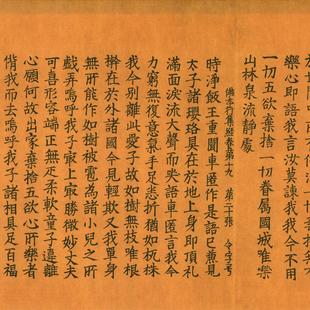 樂心即語我言汝莫諫我我今不用
一切五欲棄捨一切眷屬國城唯樂
山林泉流靜處
佛本行集經卷第十九 第二十張 令字号
時淨飯王重聞車匿作是語已󠄁見
太子諸瓔珞具在於地上身即頂礼
滿面淚流大聲而失語車匿言我今
力窮無復意氣手足悉折猶如杌株
我今別離此愛子故如樹無枝唯根
榦在於外國今見輕欺又我單身
無所能作如樹被電為諸小兒之所
戲弄嗚呼我子寂上寂勝微妙丈夫
可喜形容端正無比柔軟童子違離
心願何故出家棄捨五欲心所樂者
偝我而去嗚呼我子諸相具足百福